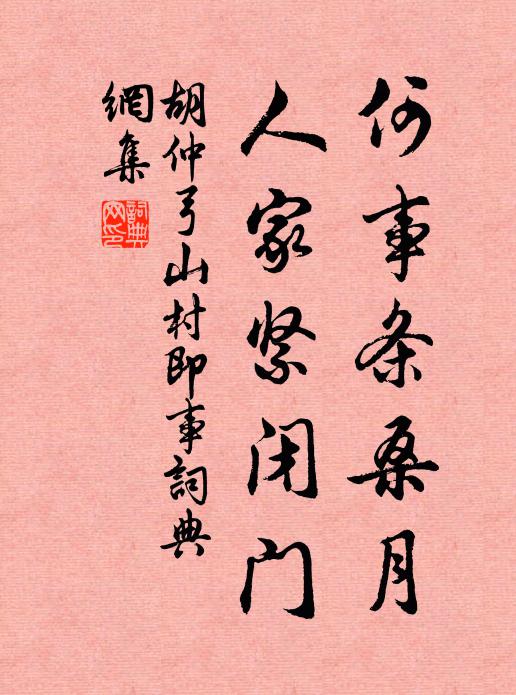 何事条桑月
人家紧闭门
胡仲弓山村即事詞典
網集
詞典網印